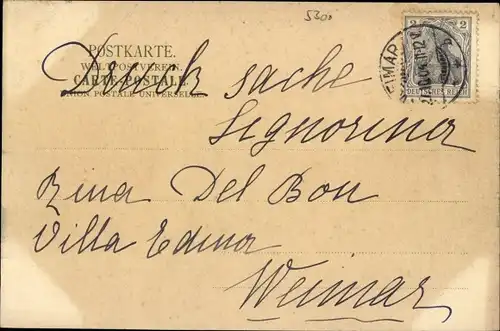 5300
POSTKARTE.
WELTPOSTVEREIN.
CARTE POSTALE
UNION POSTALE UNIVERSELLE.
2 2
DEUTSCHES REICH
WEIMAR
Drucksache
Signorina
Rina Del Bon
Villa Edina
Weimar